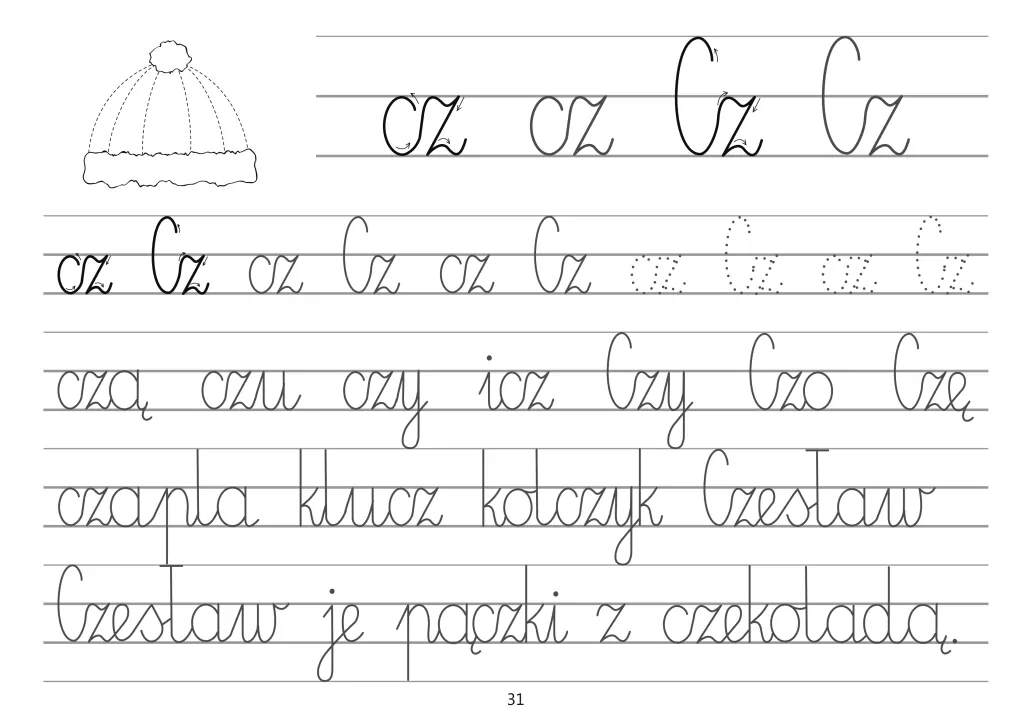 cz cz Cz Cz
cz Cz cz Cz cz Cz cz Cz cz Cz
czą czu czy icz Czy Czo Czę
czapla klucz kolczyk Czesław
Czesław je pączki z czekoladą.
31